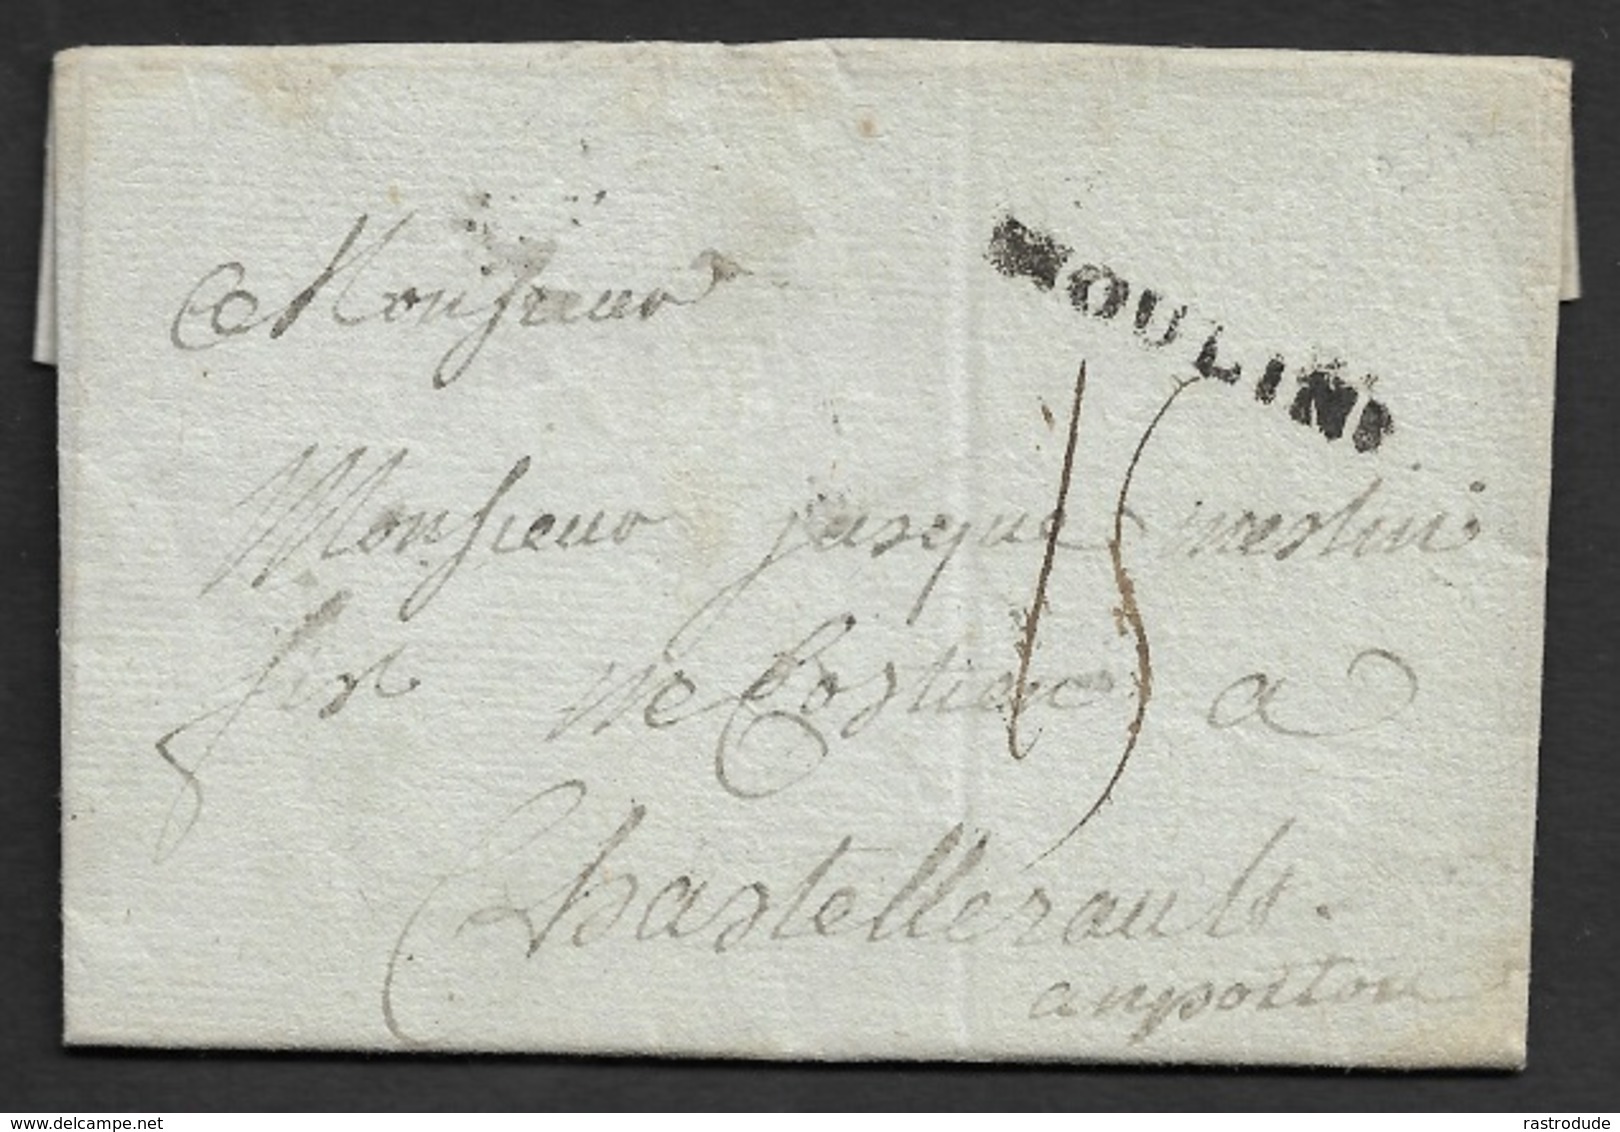 MOULINS
A Monsieur
15
Monsieur jusque merlin
fist de Costiere a
Chastellerault.
en poitou
delcampe.net
rastrodude